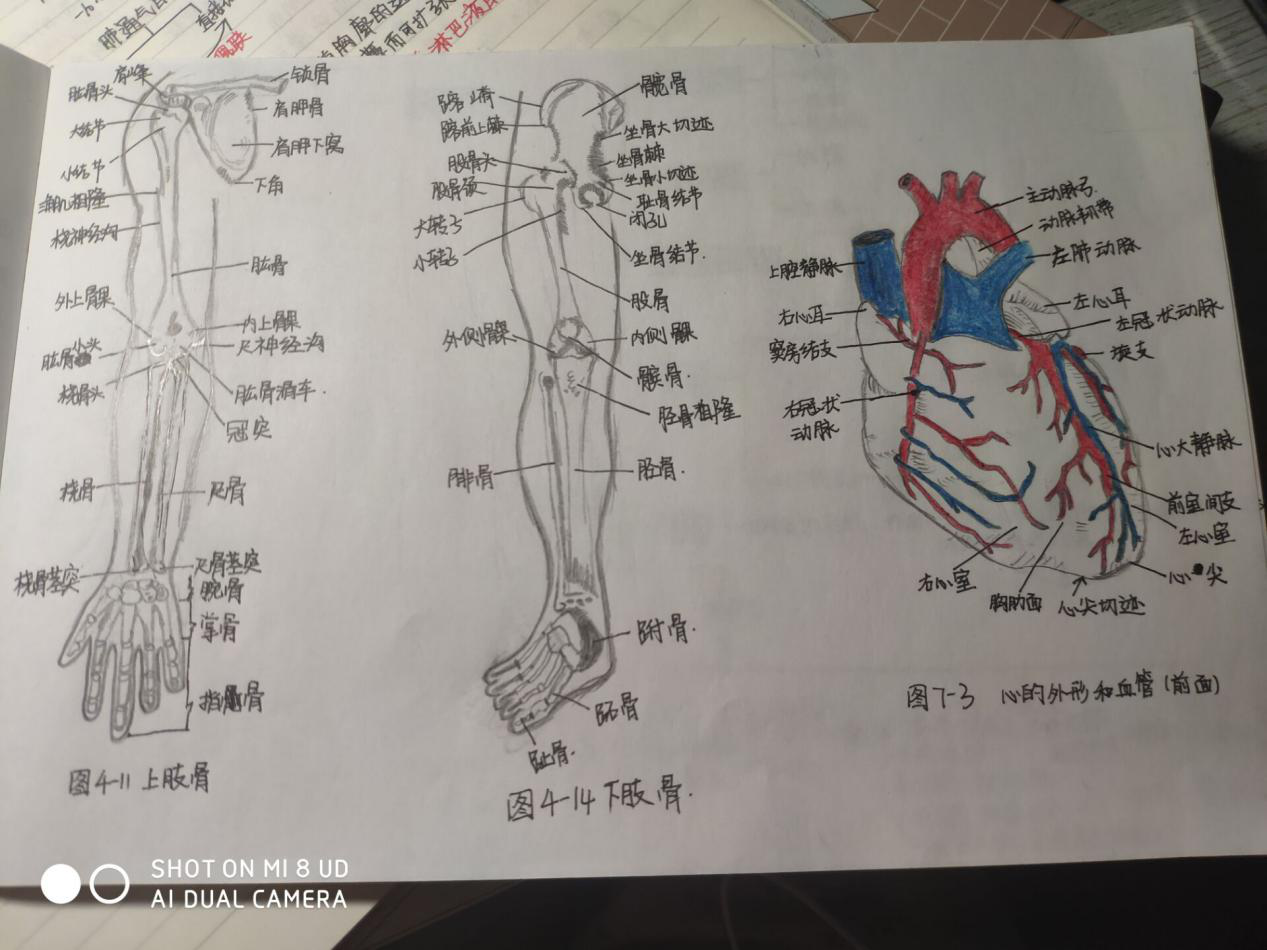 肺通气
直接
胸廓的
而可扩
淋巴
肩峰
肱骨头
大结节
小结节
三角肌粗隆
桡神经沟
外上髁
肱骨小头
桡骨头
桡骨
桡骨茎突
锁骨
肩胛骨
肩胛下窝
下角
肱骨
内上髁
尺神经沟
肱骨滑车.
冠突
尺骨
尺骨茎突
腕骨
掌骨
指骨
图4-11 上肢骨
髂嵴
髂前上棘
股骨头
股骨颈
大转子
小转子
外侧髁
腓骨
髋骨
坐骨大切迹
坐骨棘
坐骨小切迹
耻骨结节
闭孔
坐骨结节.
股骨
内侧髁
髌骨.
胫骨粗隆
胫骨.
跗骨.
跖骨
趾骨.
图4-14 下肢骨.
上腔静脉
右心耳
窦房结支
右冠状
动脉
右心室
胸肋面
心尖切迹
主动脉弓.
动脉韧带
左肺动脉
左心耳
左冠状动脉
旋支
心大静脉
前室间支
左心室
心尖
图7-3 心的外形和血管(前面)
SHOT ON MI 8 UD
AI DUAL CAMERA